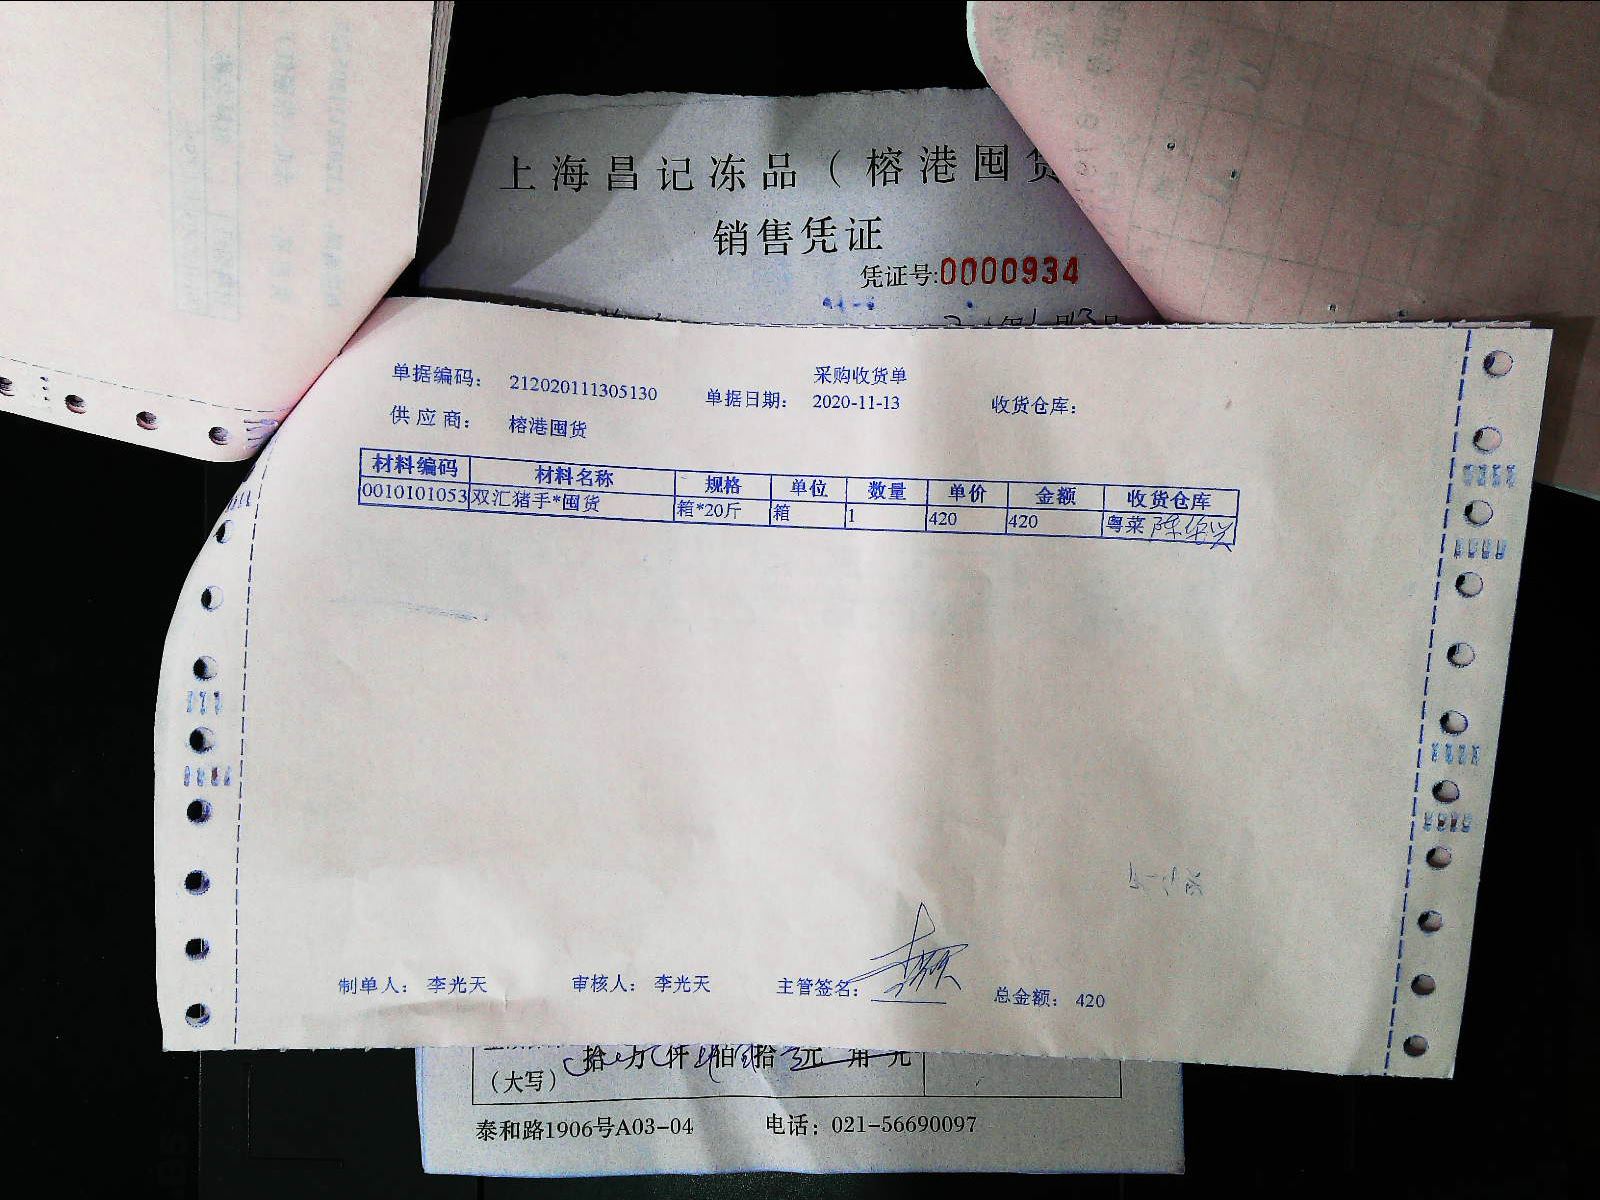 上海昌记冻品（榕港囤货
销售凭证
凭证号:0000934
采购收货单
单据编码： 212020111305130 单据日期： 2020-11-13 收货仓库：
供应商： 榕港囤货
材料编码 材料名称 规格 单位 数量 单价 金额 收货仓库
0010101053 双汇猪手*囤货 箱*20斤 箱 1 420 420 粤菜
制单人： 李光天 审核人： 李光天 主管签名： 总金额： 420
拾 万 仟 佰 拾 元 角
（大写）
泰和路1906号A03-04 电话：021-56690097